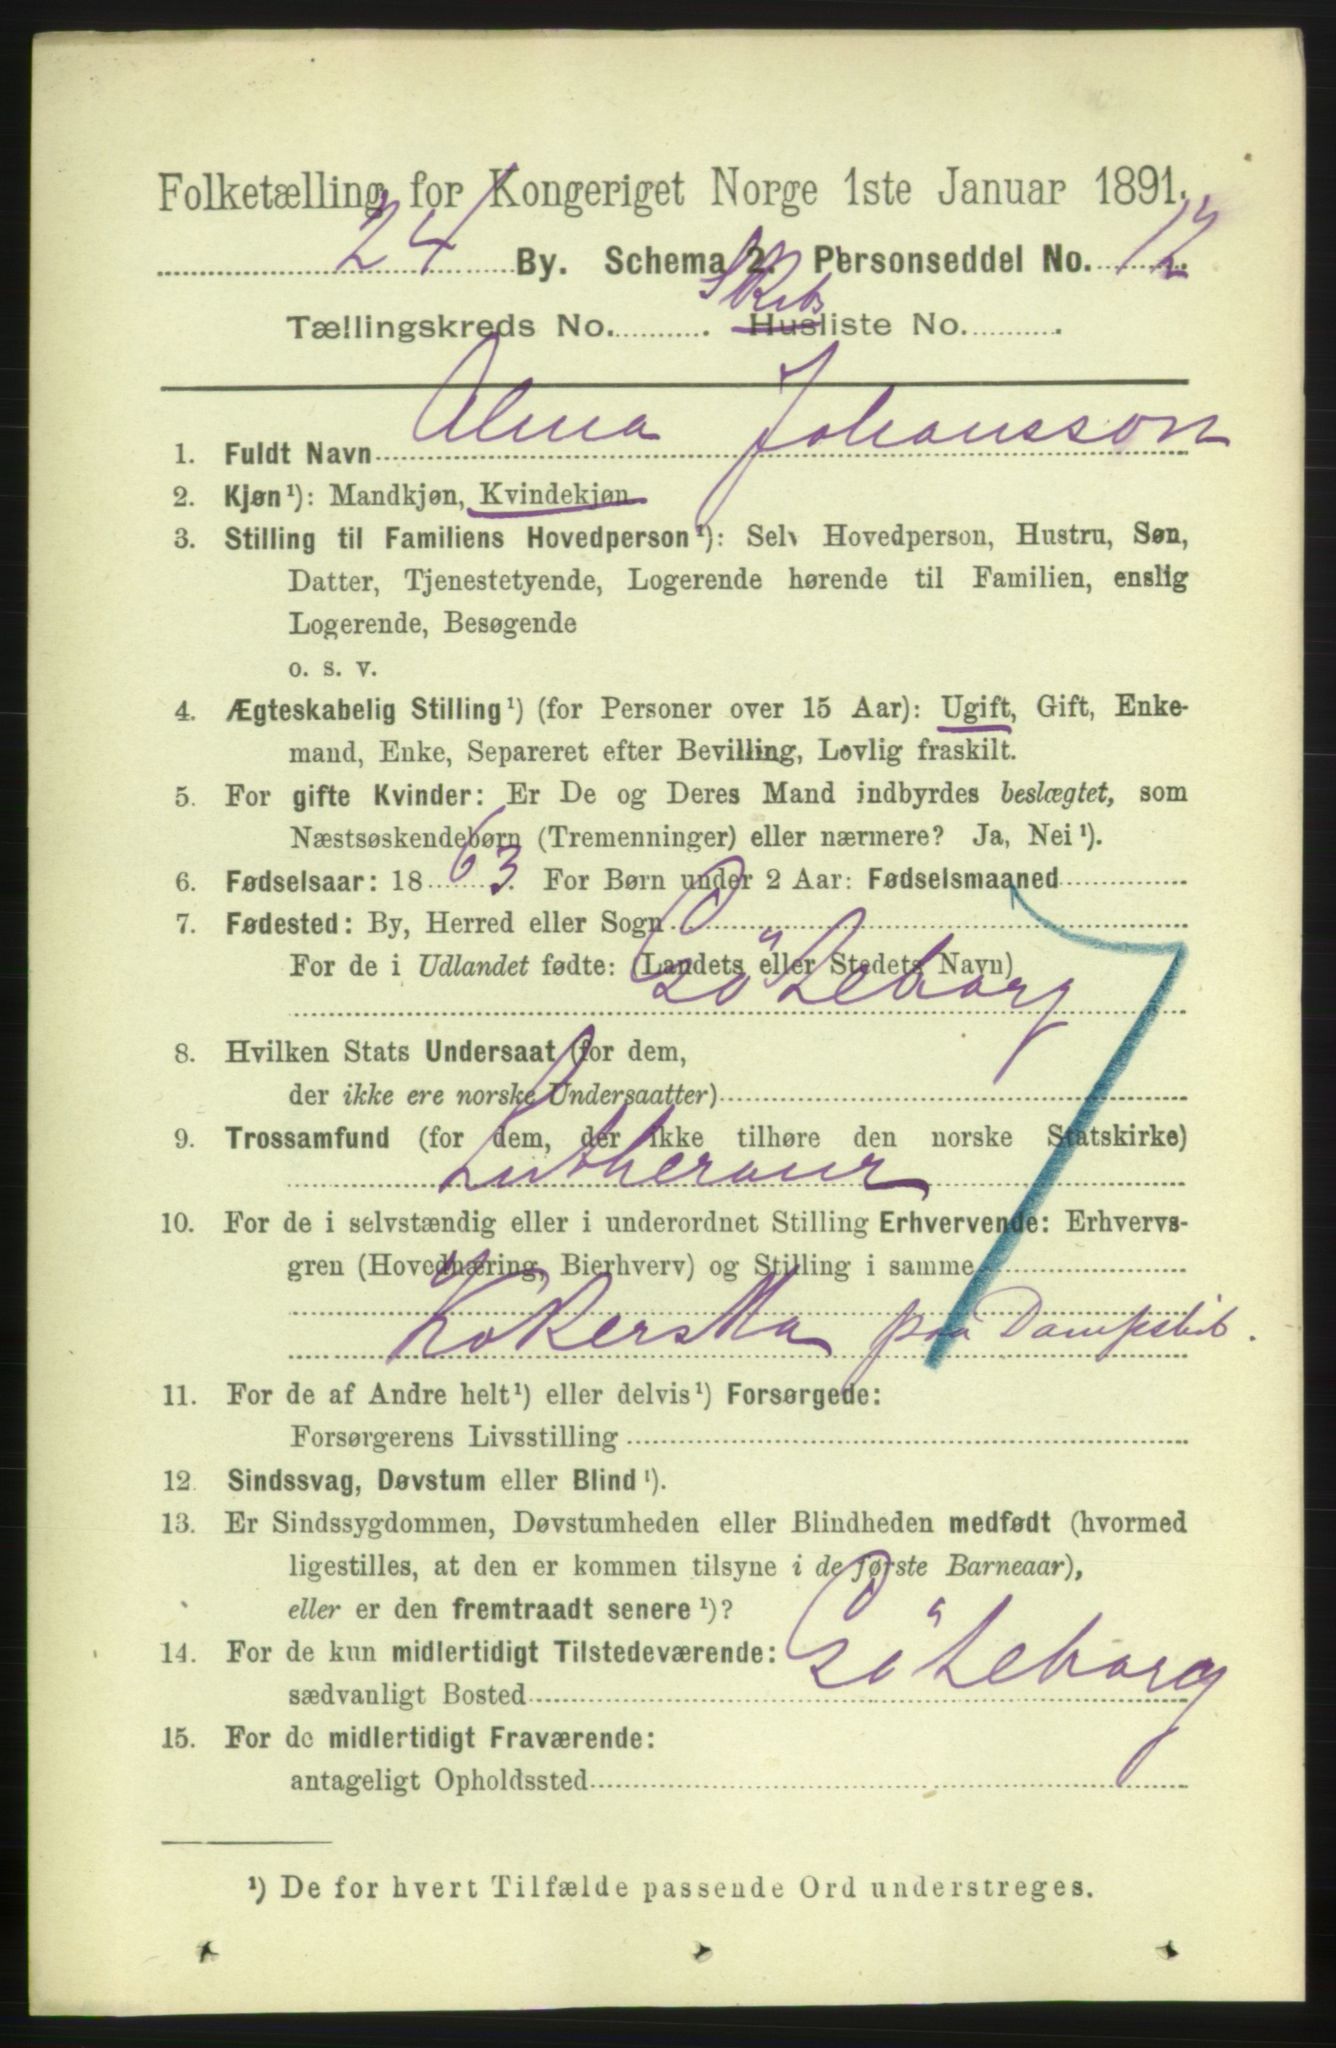 Folketælling for Kongeriget Norge 1ste Januar 1891.
24 By. Schema 2. Personseddel No. 12
Skibs
Tællingskreds No. . Husliste No. .
Alma Johansson
1. Fuldt Navn
2. Kjøn¹): Mandkjøn, Kvindekjøn
3. Stilling til Familiens Hovedperson¹): Selv Hovedperson, Hustru, Søn,
Datter, Tjenestetyende, Logerende hørende til Familien, enslig
Logerende, Besøgende
o. s. v.
4. Ægteskabelig Stilling¹) (for Personer over 15 Aar): Ugift, Gift, Enke-
mand, Enke, Separeret efter Bevilling, Lovlig fraskilt.
5. For gifte Kvinder: Er De og Deres Mand indbyrdes beslægtet, som
Næstsøskendebørn (Tremenninger) eller nærmere? Ja, Nei¹).
6. Fødselsaar: 1863. For Børn under 2 Aar: Fødselsmaaned
7. Fødested: By, Herred eller Sogn
For de i Udlandet fødte: (Landets eller Stedets Navn)
Göteborg
8. Hvilken Stats Undersaat (for dem,
der ikke ere norske Undersaatter)
9. Trossamfund (for dem, der ikke tilhøre den norske Statskirke)
Lutheraner
10. For de i selvstændig eller i underordnet Stilling Erhvervende: Erhvervs-
gren (Hovednæring, Bierhverv) og Stilling i samme
Kökerska paa Dampskib.
11. For de af Andre helt¹) eller delvis¹) Forsørgede:
Forsørgerens Livsstilling
12. Sindssvag, Døvstum eller Blind¹).
13. Er Sindssygdommen, Døvstumheden eller Blindheden medfødt (hvormed
ligestilles, at den er kommen tilsyne i de første Barneaar),
eller er den fremtraadt senere¹)?
14. For de kun midlertidigt Tilstedeværende:
sædvanligt Bosted Göteborg
15. For de midlertidigt Fraværende:
antageligt Opholdssted
¹) De for hvert Tilfælde passende Ord understreges.